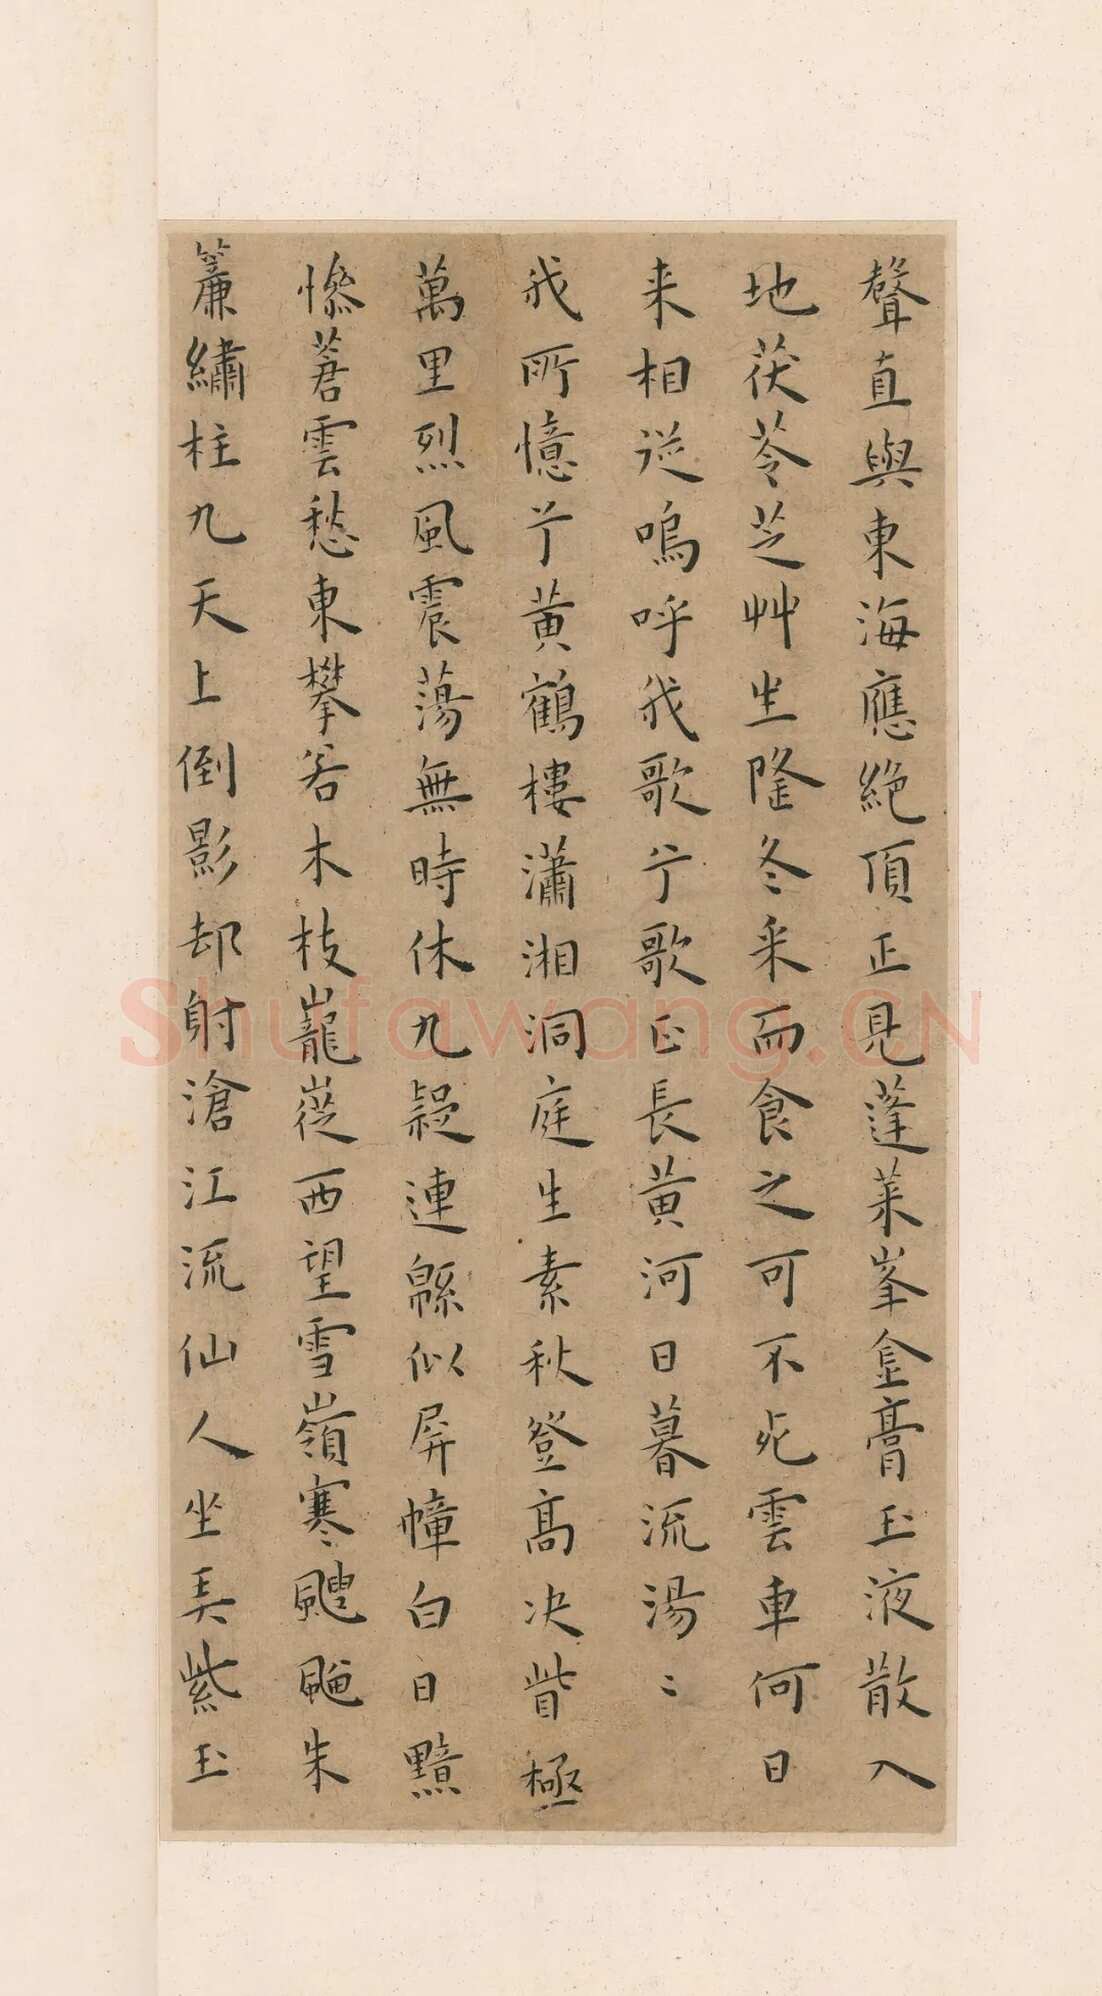 聲直與東海應絕頂正見蓬萊峯金膏玉液散入
地茯苓芝艸生隆冬采而食之可不死雲車何日
来相從嗚呼我歌兮歌正長黄河日暮流湯〻
我所憶兮黄鶴樓瀟湘洞庭生素秋登髙决眥極
萬里烈風震蕩無時休九疑連緜似屏幛白日黯
慘蒼雲愁東攀若木枝巃嵸西望雪嶺寒颼飀朱
簾繡柱九天上倒影却射滄江流仙人坐弄紫玉
Shufawang.CN